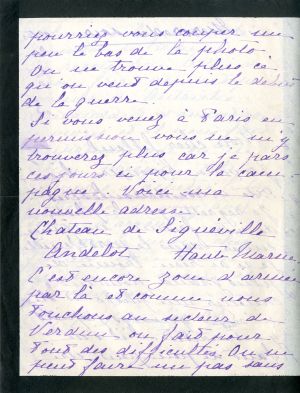 pourriez vous couper un
peu le bas de la photo
On ne trouve plus ce
que on veut depuis le début
de la guerre.
Si vous venez à Paris en
permission vous ne m'y
trouverez plus car je pars
ces jours ci pour la cam-
pagne. Voici ma
nouvelle adresse
Chateau de Signéville
Andelot Haute Marne
C'est encore zone d'armée
par là et comme nous
touchons au secteur de
Verdun on fait pour
tout des difficultés. On ne
peut faire un pas sans